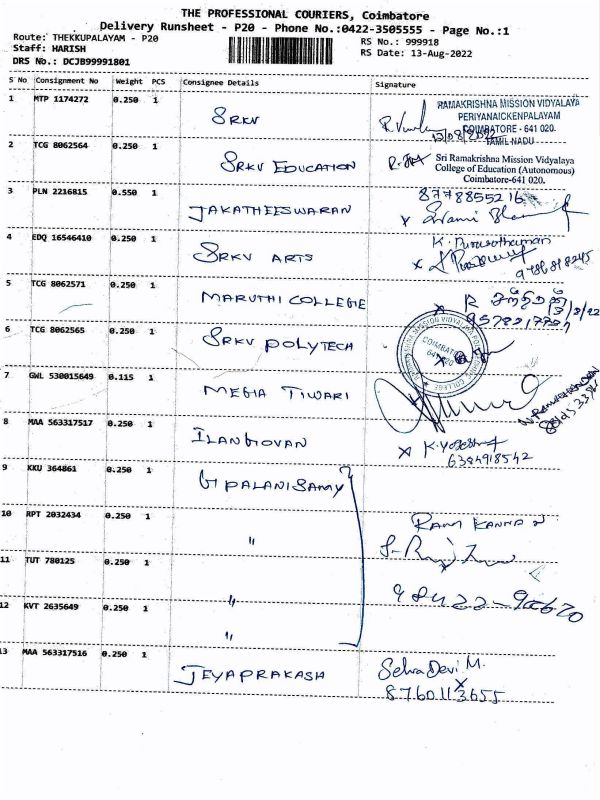 THE PROFESSIONAL COURIERS, Coimbatore
Delivery Runsheet - P20 - Phone No.:0422-3505555 - Page No.:1
Route: THEKKUPALAYAM - P20
RS No.: 999918
Staff: HARISH
RS Date: 13-Aug-2022
DRS No.: DCJB99991801
S No Consignment No Weight PCS Consignee Details Signature
1 MTP 1174272 0.250 1 SRKV
RAMAKRISHNA MISSION VIDYALAYA
PERIYANAICKENPALAYAM
COIMBATORE - 641 020.
TAMIL NADU
2 TCG 8062564 0.250 1 SRKV EDUCATION
Sri Ramakrishna Mission Vidyalaya
College of Education (Autonomous)
Coimbatore-641 020.
3 PLN 2216815 0.550 1 JAKATHEESWARAN
8778855216
4 EDQ 16546410 0.250 1 SRKV ARTS
K. Purusothaman
5 TCG 8062571 0.250 1 MARUTHI COLLEGE
6 TCG 8062565 0.250 1 SRKV POLYTECH
COIMBATORE
641 020
7 GWL 530015649 0.115 1 MEGHA TIWARI
8 MAA 563317517 0.250 1 ILANGOVAN
6384918542
9 KKU 364861 0.250 1 G PALANISAMY
10 RPT 2032434 0.250 1 "
RAM KANNAN
11 TUT 780125 0.250 1 "
12 KVT 2635649 0.250 1 "
13 MAA 563317516 0.250 1 JEYAPRAKASH
Selva Devi M.
8760113655